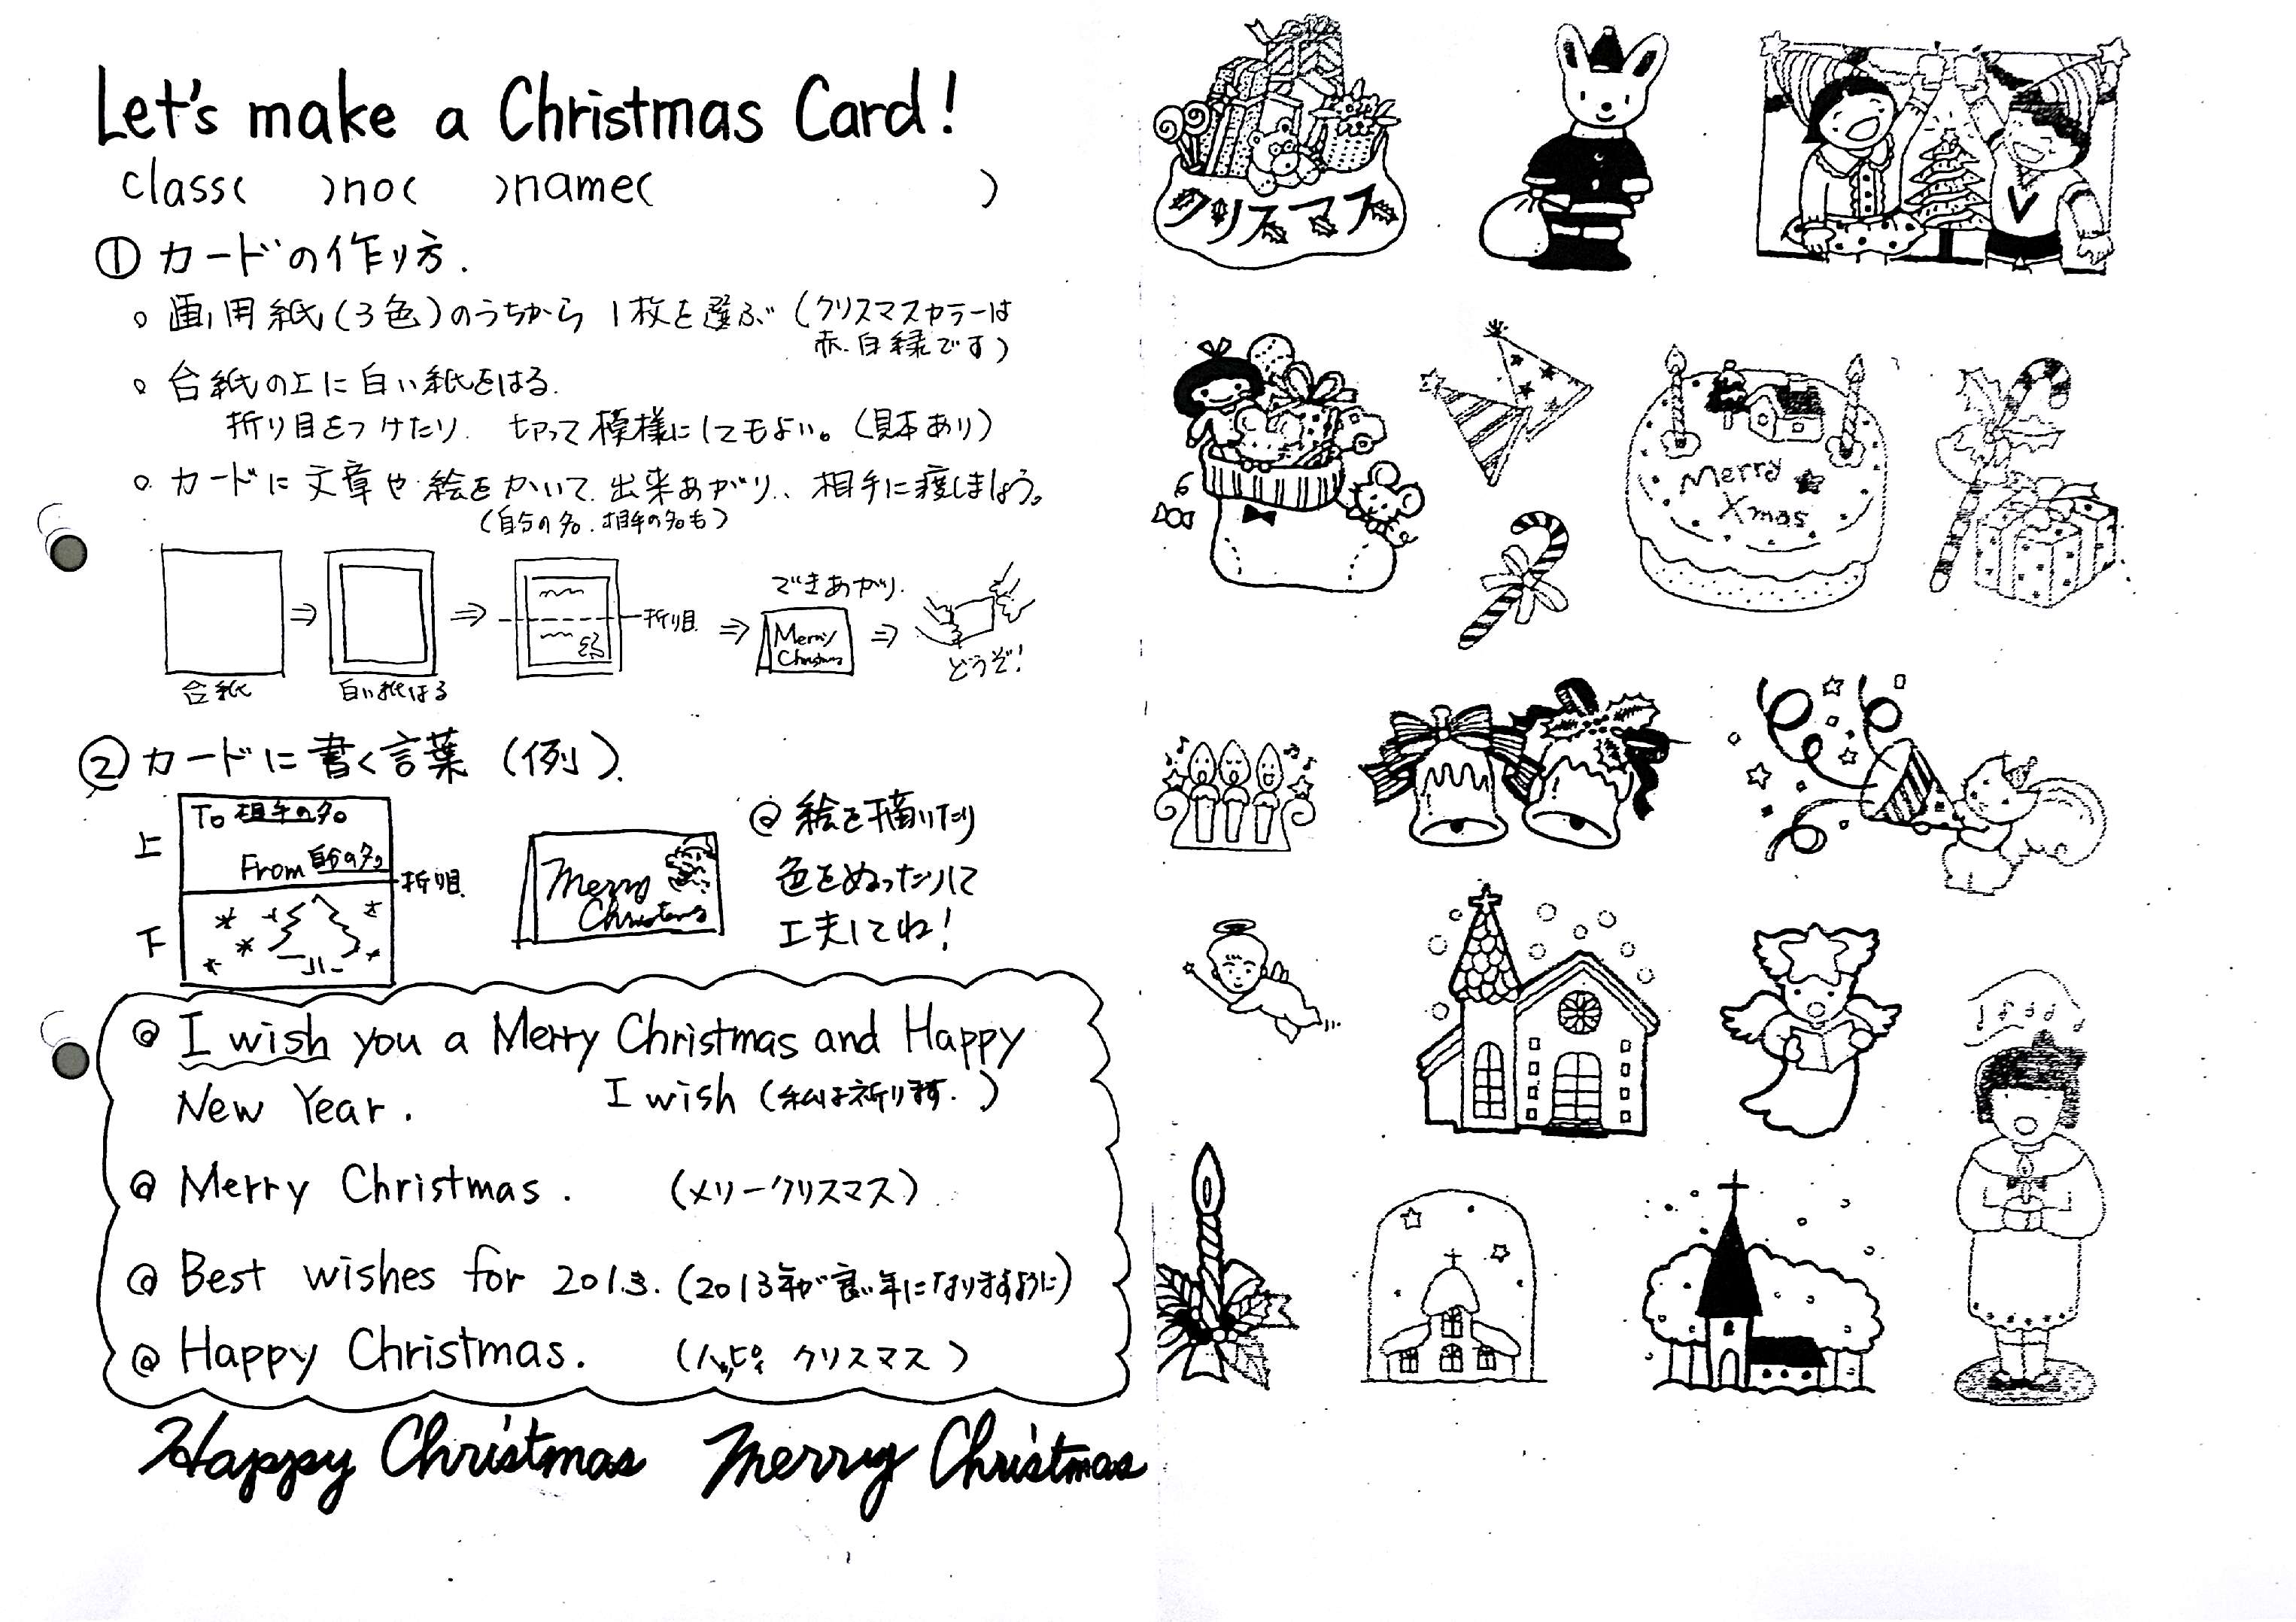 Let's make a Christmas Card!
class(　　)no(　　)name(　　　　　　　)
① カードの作り方.
○ 画用紙(3色)のうちから 1枚を選ぶ (クリスマスカラーは
赤.白緑です)
○ 台紙の上に白い紙をはる.
折り目をつけたり. 切って模様にしてもよい。(見本あり)
○ カードに文章や絵をかいて.出来あがり、相手に渡しましょう。
(自分の名.相手の名も)
台紙
白い紙はる
絵
折り目
できあがり.
Merry
Christmas
どうぞ!
② カードに書く言葉 (例).
上
To 相手の名
From 自分の名
折り目
下
Merry
Christmas
@ 絵を描いたり
色をぬったりして
工夫してね!
@ I wish you a Merry Christmas and Happy
New Year.　I wish (私は祈ります.)
@ Merry Christmas.　(メリークリスマス)
@ Best wishes for 2013. (2013年が良い年になりますように)
@ Happy Christmas.　(ハッピィ クリスマス)
Happy Christmas　Merry Christmas
クリスマス
Merry
Xmas